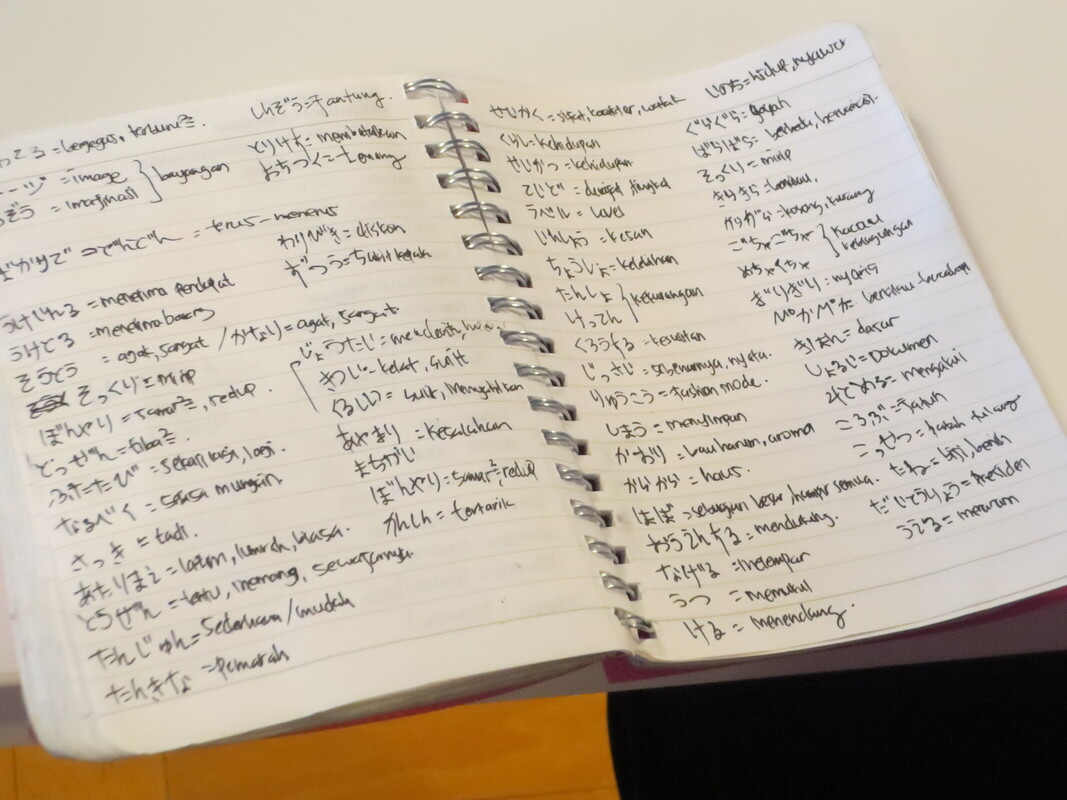 しんぞう = Jantung.
とりけす = membatalkan
おちつく = tenang
= image
ぞう = imajinasi
} bayangan
= terus-menerus
わりびき = diskon
ずつう = sakit kepala
うけいれる = menerima pendapat
うけとる = menerima barang
そうとう = agak, sangat / かなり = agak, sangat
そっくり = mirip
ぼんやり = samar², redup.
とつぜん = tiba².
ふたたび = sekali lagi, lagi.
なるべく = sebisa mungkin
さっき = tadi.
あたりまえ = lazim, lumrah, biasa.
とうぜん = tentu, memang, sewajarnya.
たんじゅん = Sederhana / mudah
たんきな = Pemarah
くるしい = sulit, menyakitkan
あやまり = Kesalahan
まちがい
ぼんやり = samar², redup
かんしん = tertarik
せいかく = sifat, karakter, watak
くらし = kehidupan
せいかつ = kehidupan
ていど = derajat, tingkat
ラベル = level
いんしょう = kesan
ちょうしょ = kelebihan
たんしょ
けってん
} kekurangan
くろうする = kesulitan
じっさい = sebenarnya, nyata.
りゅうこう = fashion mode.
しまう = menyimpan
かおり = bau harum, aroma
からから = haus
ほぼ = sebagian besar, hampir semua.
おうえんする = mendukung.
なげる = melempar
うつ = memukul
ける = menendang.
いのち = hidup, nyawa
ぐらぐら = goyah
ばらばら = berbeda,
そっくり = mirip
きらきら =
がらがら = kosong, kurang
ごちゃごちゃ
めちゃくちゃ
} kacau kebingungan
ぎりぎり = nyaris
ぺかぺか =
きほん = dasar
しょるい = Dokumen
みとめる = mengakui
ころぶ = Jatuh
こっせつ = patah tulang
たね = biji, benih
だいとうりょう = Presiden
うえる = menanam